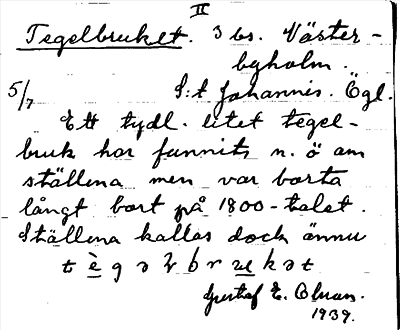 II
Tegelbruket. 3 bs. Väster-
byholm.
5/7 S:t Johannis. Ögl.
Ett tydl. litet tegel-
bruk har funnits n. ö om
ställena men var borta
långt bort på 1800-talet.
Ställena kallas dock ännu
t è g ə l b r u k ə t
Gustaf E. Olsson.
1939.